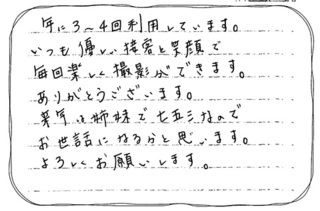 年に3～4回利用しています。
いつも優しい接客と笑顔で
毎回楽しく撮影ができます。
ありがとうございます。
来年は姉妹で七五三なので
お世話になるかと思います。
よろしくお願いします。